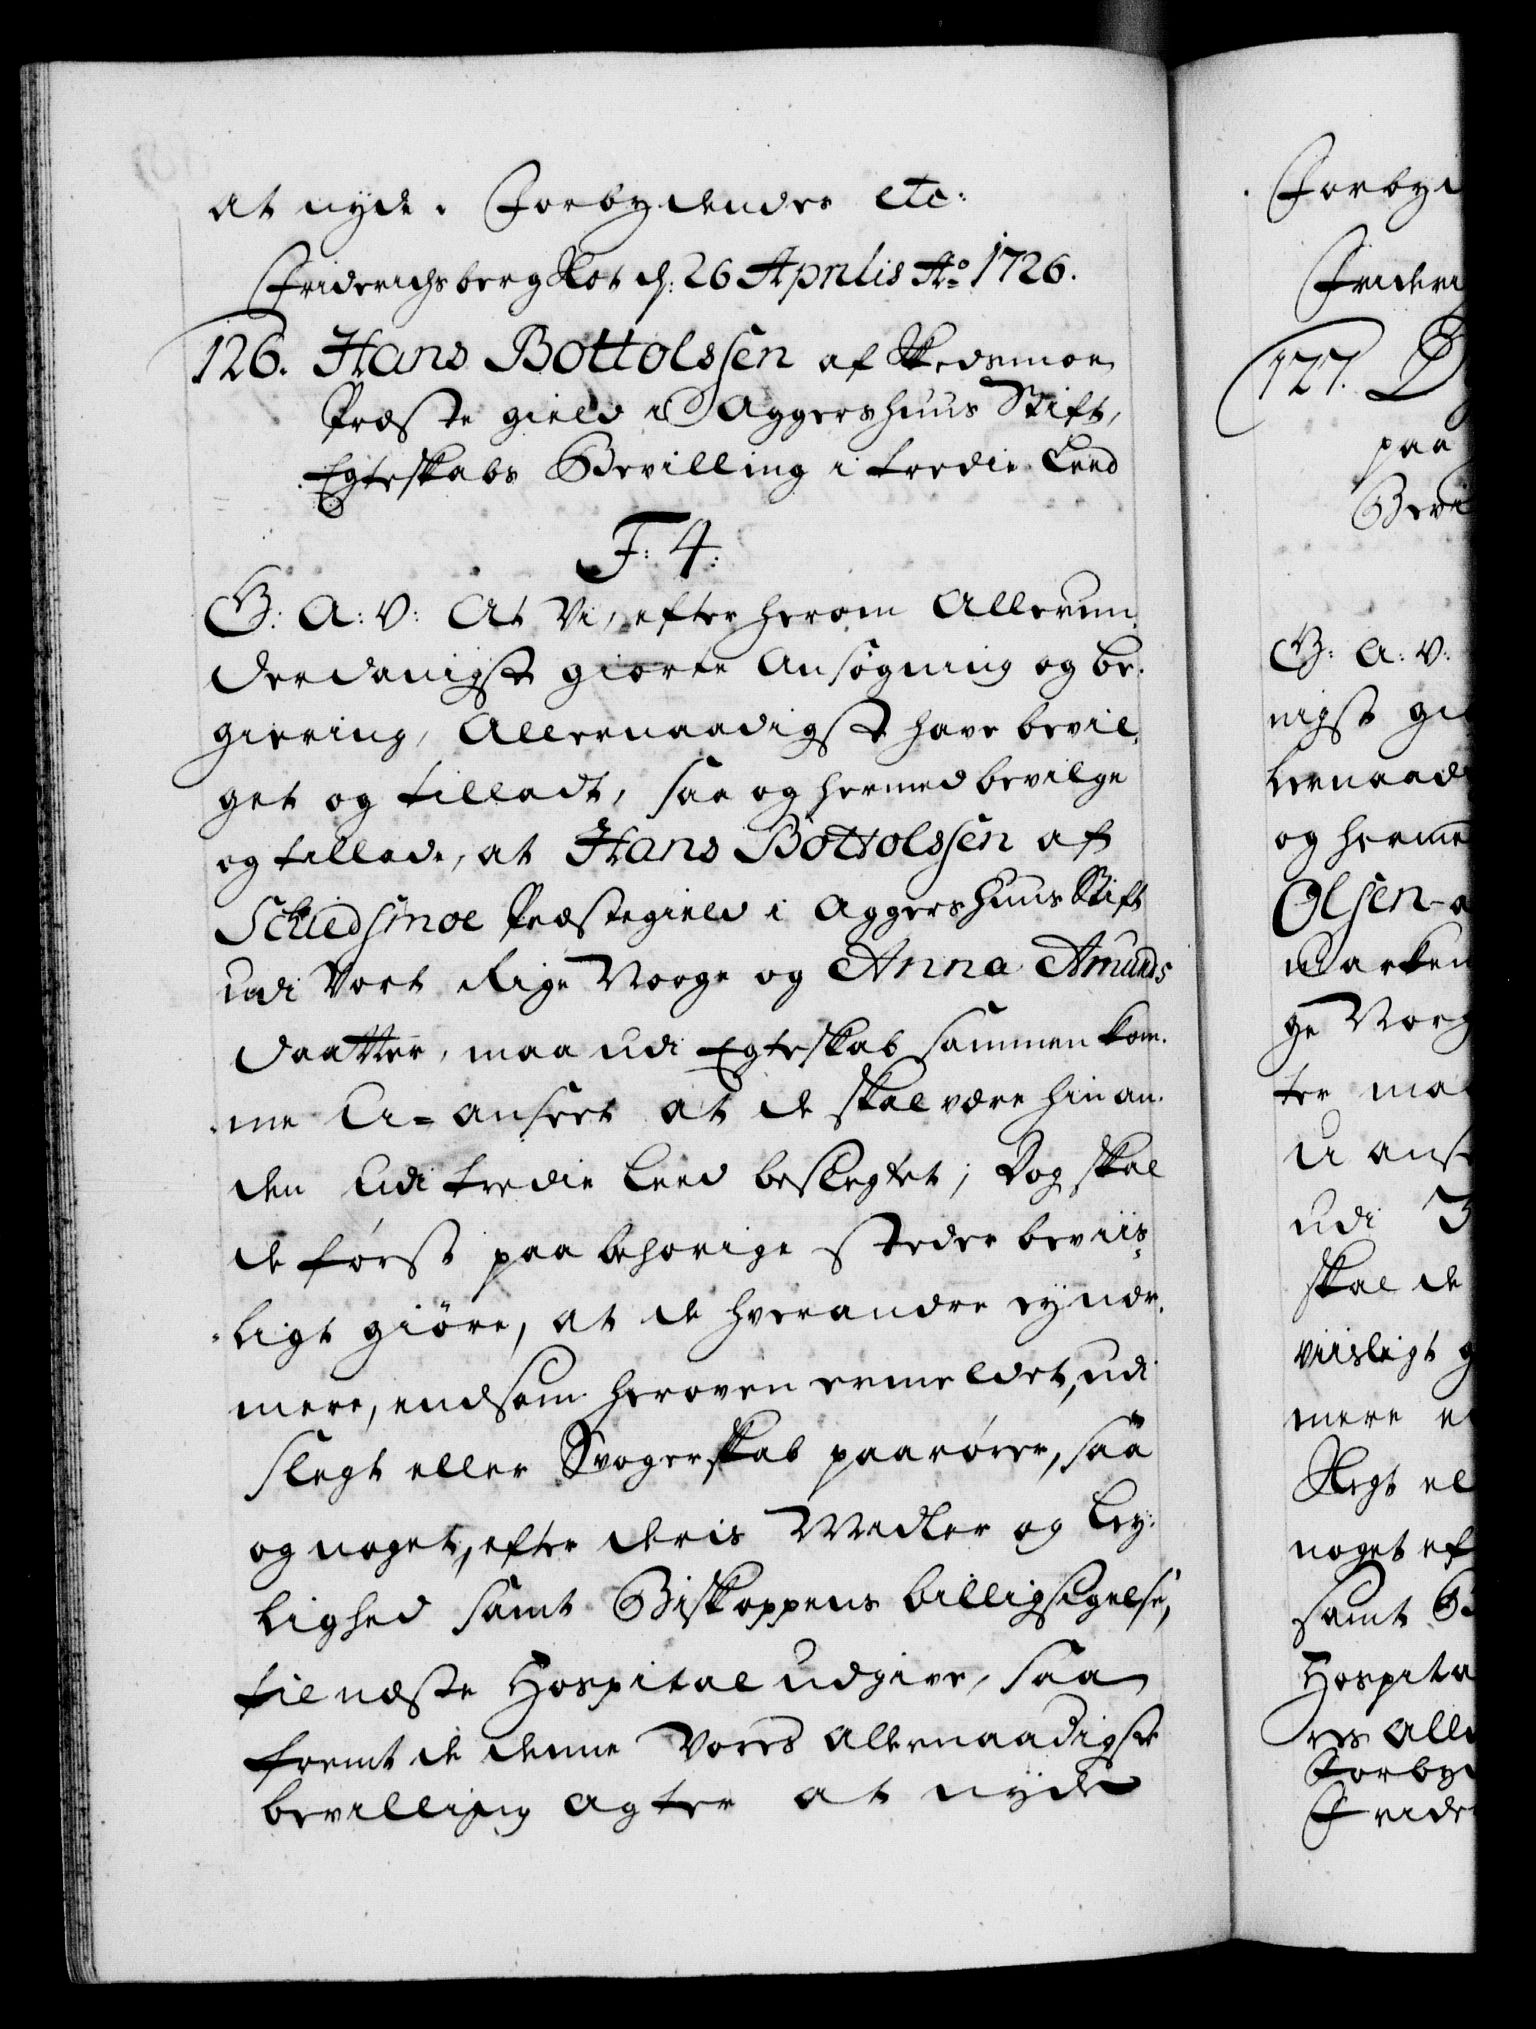 at nyde. Forbydendes etc:
Friderichsberg Slot d: 26 Aprilis Ao 1726.
126. Hans Bottolssen af Skedsmoe
Præste gield i Aggershuus Stift,
Egteskabs Bevilling i tredie Leed
F: 4:
G: A: V: At Vi, efter herom Allerun-
derdanigst giorte Ansøgning og be-
giering, Allernaadigst have bevil-
get og tilladt, saa og hermed bevilge
og tillade, at Hans Bottolssen af
Schiedsmoe Præstegield i Aggershuus Stift
udi Vort Rige Norge og Anna Amunds
daatter, maa udi Egteskab sammen kom-
me U-anseet at de skal være hinan-
den udi tredie Leed beslegtet; Dog skal
de først paa behørige steder beviis-
ligt giøre, at de hverandre ej nær-
mere, end som heroven ermeldet, udi
slegt eller Svogerskab paarører, saa
og noget, efter deris Midler og Ley-
lighed samt Biskoppens billigsigelse,
til næste Hospital udgive, saa
fremt de denne Vores Allernaadigste
bevilling agter at nyde
Forbyd
Frideri
127.
paa
Bevi
G: A: V:
nigst gi
lernaad
og herme
Olsen a
marken
ge Norg
ter ma
u anse
udi 3
skal de
viisligt g
mere e
Slegt el
noget ef
samt Bi
Hospita
res Alle
Forby
Fride